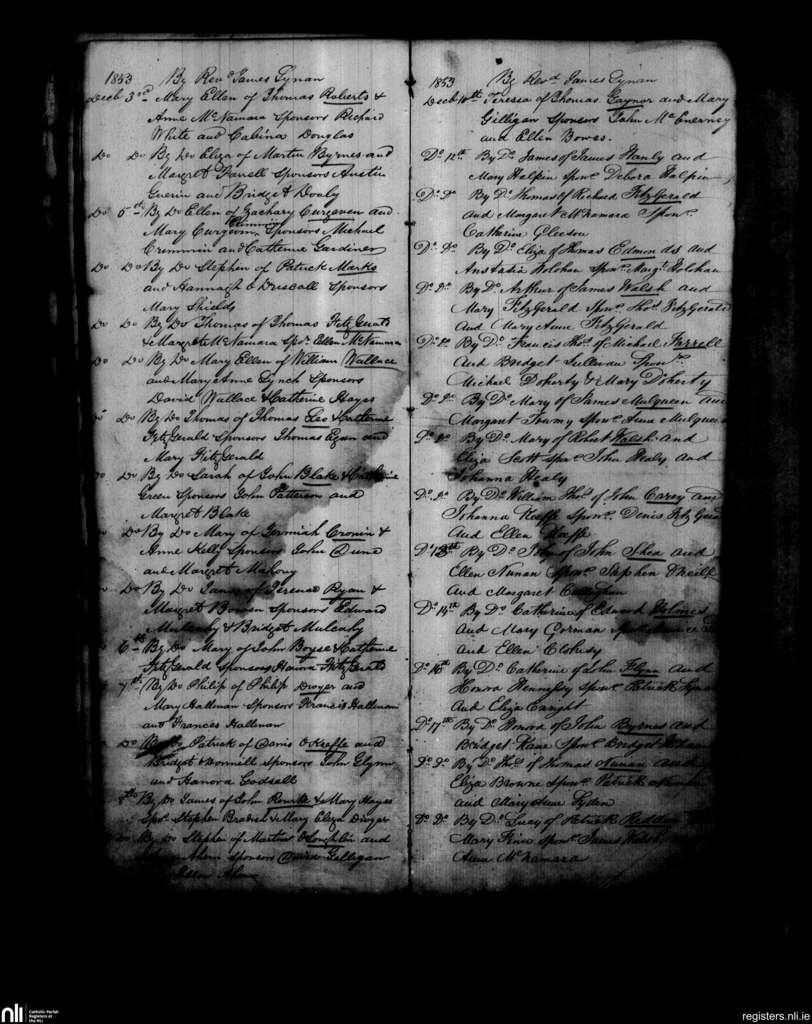 1853 By Revd James Tynan
Decb 3rd Mary Ellen of Thomas Roberts &
Anne McNamara Sponsors Richard
White and Cabina Douglas
Do Do By Do Eliza of Martin Byrnes and
Margret Farrell Sponsors Austin
Guerin and Bridget
Do 5th By Do Ellen of Zachary Curgeven and
Mary Sponsors Michael
Crimmin and Catherine Gardiner
Do Do By Do Stephen of Patrick Marks
and Hannagh O Driscall Sponsors
Mary Shields
Do Do By Do Thomas of Thomas FitzGerald
& Margrete McNamara Spds Ellen McNamara
Do Do By Do Mary Ellen of William Wallace
and Mary Anne Lynch Sponsors
David Wallace & Catherine Hayes
Do By Do Thomas of Thomas Leo & Catherine
FitzGerald Sponsors Thomas Ryan and
Mary FitzGerald
Do By Do Sarah of John Blake & Catherine
Green Sponsors John Patterson and
Margret Blake
Do By Do Mary of Jermiah Cronin &
Anne Kelly Sponsors John Dunne
and Margret Mahony
Do By Do James of Terence Ryan &
Margret Sponsors Edward
Mulcahy & Bridget Mulcahy
6th By Do Mary of John Boyse & Catherine
FitzGerald Sponsors Hanora FitzGerald
7th By Do Philip of Philip Dwyer and
Mary Hallinan Sponsors Francis Hallinan
and Frances Hallinan
Do By Do Patrick of Denis O Keeffe and
Bridget O Donnell Sponsors John Glynn
and Hanora Godsell
8th By Do James of John Rourke & Mary Hayes
Spds Stephen Bradish & Mary Eliza Dwyer
Do By Do Stephen of Martin O Loughlin and
Sponsors David Gilligan
Ellen
1853 By Revd James Tynan
Decb 10th Teressa of Thomas Gaynor and Mary
Gilligan Sponsors John McEnerney
and Ellen Bowes.
Do 12th By Do James of James Hanly and
Mary Halpin Sponrs Debora Halpin
Do Do By Do Thomas of Richard FitzGerald
and Margaret McNamara Sponr
Catherine Gleeson
Do Do By Do Eliza of Thomas Edmonds and
Anstatia Holohan Sponr Margt Holohan
Do Do By Do Arthur of James Walsh and
Mary FitzGerald Sponrs Thos FitzGerald
and Mary Anne FitzGerald
Do Do By Do Francis Thos of Michael Farrell
and Bridget Sullivan Sponrs
Michael Doherty & Mary Doherty
Do Do By Do Mary of James Mulqueen and
Margaret Sponr Anne Mulqueen
Do Do By Do Mary of Robert Walsh and
Eliza Scott Spors John Healy and
Johanna Healy
Do Do By Do William Thos of John Carey and
Johanna Keeffe Sponrs Denis FitzGerald
and Ellen Keeffe
Do 13th By Do John of John Shea and
Ellen Nunan Sponrs Stephen O'Neill
and Margaret Callaghan
Do 14th By Do Catherine of Edmond Holmes
and Mary Gorman
and Ellen Clohesy
Do 16th By Do Catherine of John Flynn and
Honora Hennessy Sponrs Patrick
and Eliza Enright
Do 17th By Do Honora of John Byrnes and
Bridget Kane Sponr Bridget
Do Do By Do Thos of Thomas Nunan and
Eliza Browne Sponrs Patrick
and Mary Anne Lyden
Do Do By Do Lucy of Patrick Reddan
Mary Finn Sponrs James Walsh
Anne McNamara
nli
Catholic Parish
Registers at
the NLI
registers.nli.ie